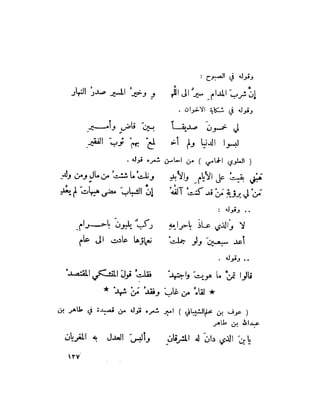 وقوله في الصبوح :
إنّ شربَ المدامِ سيرٌ الى اللهِ و وخيرُ المسيرِ صدرُ النهارِ
وقوله في شكاية الاخوان .
لي خمسون صديقــاً بـين قاضٍ وأمـــيرِ
لبسوا الدنيا ولم أخـ لعْ بهمْ ثوبَ الفقيرِ
( العلوي الحماني ) من احاسن شعره قوله .
بقيتُ على الأيامِ والأبدِ ونلتُ ما شئتُ من مالٍ ومن ولدِ
مَنْ لي برؤيةِ مَنْ قد كنتُ آلفُهُ إنَّ الشبابَ مضى هيهاتَ لم يعُدِ
.. وقوله :
لا والذي عـاذَ باحرامِهِ ركبٌ يلبونَ باحـــرامِ
أعد سبعـينَ ولو جملتْ نعماؤها عادت الى عام
.. وقوله .
قالوا تمنَّ ما هويتَ واجتهدْ فقلتُ قولَ المتشكي المقتصدْ
* لقاءُ من غابَ وفقدُ مَنْ شهِدْ *
( عوف بن محلم الشيباني ) امير شعره قوله من قصيدة في طاهر بن
عبدالله بن طاهر
يا بنَ الذي دانَ له المشرقانِ وألبسَ العدلَ به المغربان
١٢٧